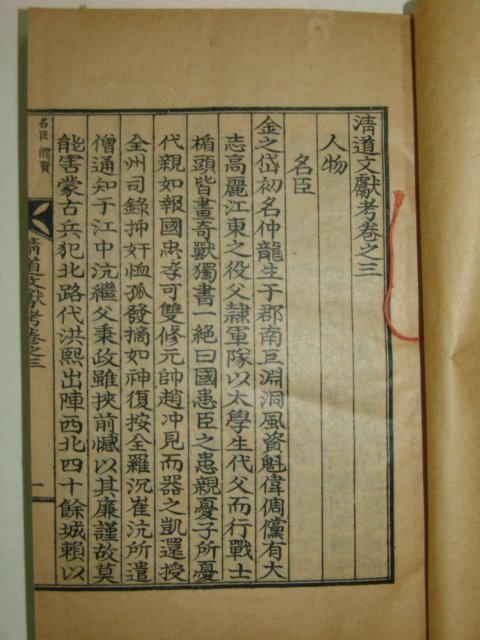 淸道文獻考卷之三
人物
名臣
金之岱初名仲龍生于郡南亘淵洞風資魁偉倜儻有大
志高麗江東之役父隷軍隊以太學生代父而行戰士
楯頭皆畫奇獸獨書一絕曰國患臣之患親憂子所憂
代親如報國忠孝可雙修元帥趙冲見而器之凱還授
全州司錄抑奸恤孤發摘如神復按全羅沉崔沆所遣
僧通知于江中沆繼父秉政雖挾前憾以其廉謹故莫
能害蒙古兵犯北路代洪熙出陣西北四十餘城賴以
名臣 儒賢
淸道文獻考卷之三
一